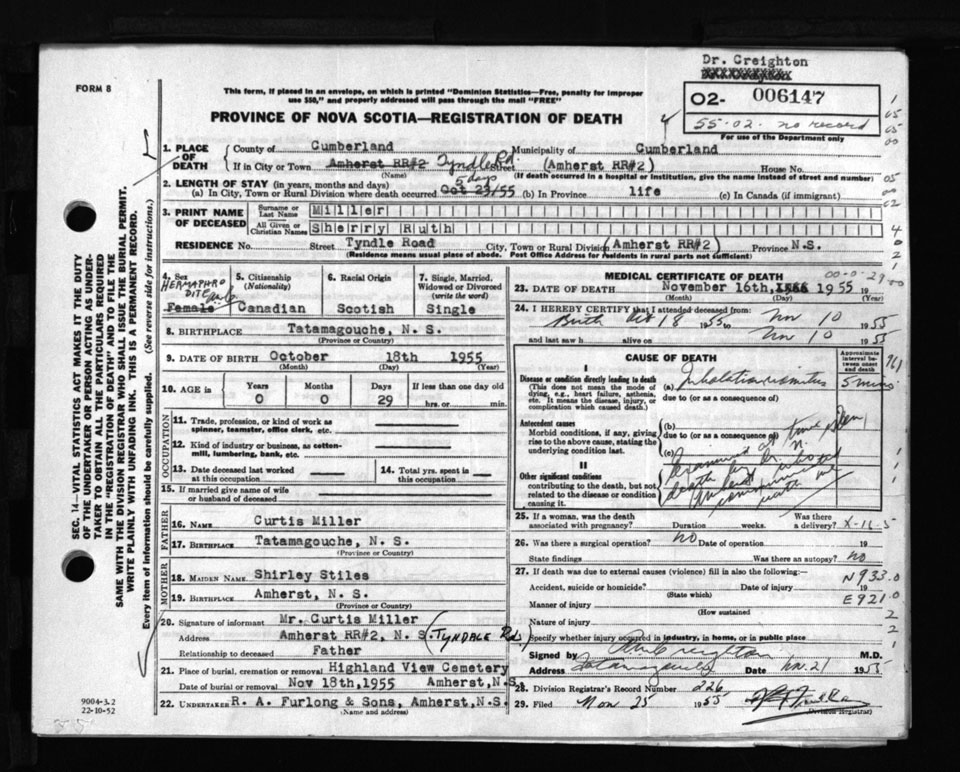 Dr. Creighton
FORM 8
This form, if placed in an envelope, on which is printed "Dominion Statistics—Free, penalty for improper
use $50," and properly addressed will pass through the mail "FREE"
PROVINCE OF NOVA SCOTIA—REGISTRATION OF DEATH
O2- 006147
55-02- no record
For use of the Department only
SEC. 14—VITAL STATISTICS ACT MAKES IT THE DUTY
OF THE UNDERTAKER OR PERSON ACTING AS UNDER-
TAKER TO OBTAIN ALL THE PARTICULARS REQUIRED
IN THE "REGISTRATION OF DEATH" AND TO FILE THE
SAME WITH THE DIVISION REGISTRAR WHO SHALL ISSUE THE BURIAL PERMIT.
WRITE PLAINLY WITH UNFADING INK. THIS IS A PERMANENT RECORD.
Every item of information should be carefully supplied. (See reverse side for instructions.)
1. PLACE OF DEATH
County of Cumberland Municipality of Cumberland
If in City or Town Amherst RR#2 Tyndle Rd. Street (Amherst RR#2) House No.
(Name) (If death occurred in a hospital or institution, give the name instead of street and number)
2. LENGTH OF STAY (in years, months and days)
(a) In City, Town or Rural Division where death occurred Oct 23/55 5 days (b) In Province life (c) In Canada (if immigrant)
3. PRINT NAME OF DECEASED
Surname or Last Name Miller
All Given or Christian Names Sherry Ruth
RESIDENCE No. Street Tyndle Road City, Town or Rural Division (Amherst RR#2) Province N.S.
(Residence means usual place of abode. Post Office Address for residents in rural parts not sufficient)
4. Sex Female HERMAPHRODITE
5. Citizenship (Nationality) Canadian
6. Racial Origin Scotish
7. Single, Married, Widowed or Divorced (write the word) Single
8. BIRTHPLACE Tatamagouche, N. S.
(Province or Country)
9. DATE OF BIRTH October 18th 1955
(Month) (Day) (Year)
10. AGE is Years 0 Months 0 Days 29 If less than one day old hrs. or min.
OCCUPATION
11. Trade, profession, or kind of work as spinner, teamster, office clerk, etc.
12. Kind of industry or business, as cotten-mill, lumbering, bank, etc.
13. Date deceased last worked at this occupation
14. Total yrs. spent in this occupation
15. If married give name of wife or husband of deceased
FATHER
16. NAME Curtis Miller
17. BIRTHPLACE Tatamagouche, N. S.
(Province or Country)
MOTHER
18. MAIDEN NAME Shirley Stiles
19. BIRTHPLACE Amherst, N. S.
(Province or Country)
20. Signature of informant Mr. Curtis Miller
Address Amherst RR#2, N. S. (TYNDALE Rd)
Relationship to deceased Father
21. Place of burial, cremation or removal Highland View Cemetery
Date of burial or removal Nov 18th,1955 Amherst,N.S.
22. UNDERTAKER R. A. Furlong & Sons, Amherst,N.S.
(Name and Address)
9004-3.2
22-10-52
MEDICAL CERTIFICATE OF DEATH
23. DATE OF DEATH November 16th, 1955 19
(Month) (Day) (Year)
24. I HEREBY CERTIFY that I attended deceased from:
Birth Oct 18 1955 to Nov 10 1955
and last saw h alive on Nov 10 1955
CAUSE OF DEATH
Approximate interval between onset and death
I
Disease or condition directly leading to death
(This does not mean the mode of dying, e.g., heart failure, asthenia, etc. It means the disease, injury, or complication which caused death.)
(a) Inhalation vomitus 5 mins
due to (or as a consequence of)
Antecedent causes
Morbid conditions, if any, giving rise to the above cause, stating the underlying condition last.
(b)
due to (or as a consequence of)
(c)
II
Other significant conditions
contributing to the death, but not related to the disease or condition causing it.
25. If a woman, was the death associated with pregnancy? Duration weeks. Was there a delivery? X-16-5
26. Was there a surgical operation? no Date of operation 19
State findings Was there an autopsy? no
27. If death was due to external causes (violence) fill in also the following:—
Accident, suicide or homicide? Date of injury 19
(State which)
N 933.0
Manner of injury E 921.0
(How sustained
Nature of injury
Specify whether injury occurred in industry, in home, or in public place
Signed by Creighton M.D.
Address Tatamagouche Date Nov. 21 1955
28. Division Registrar's Record Number 226
29. Filed Nov 25 1955
Division Registrar